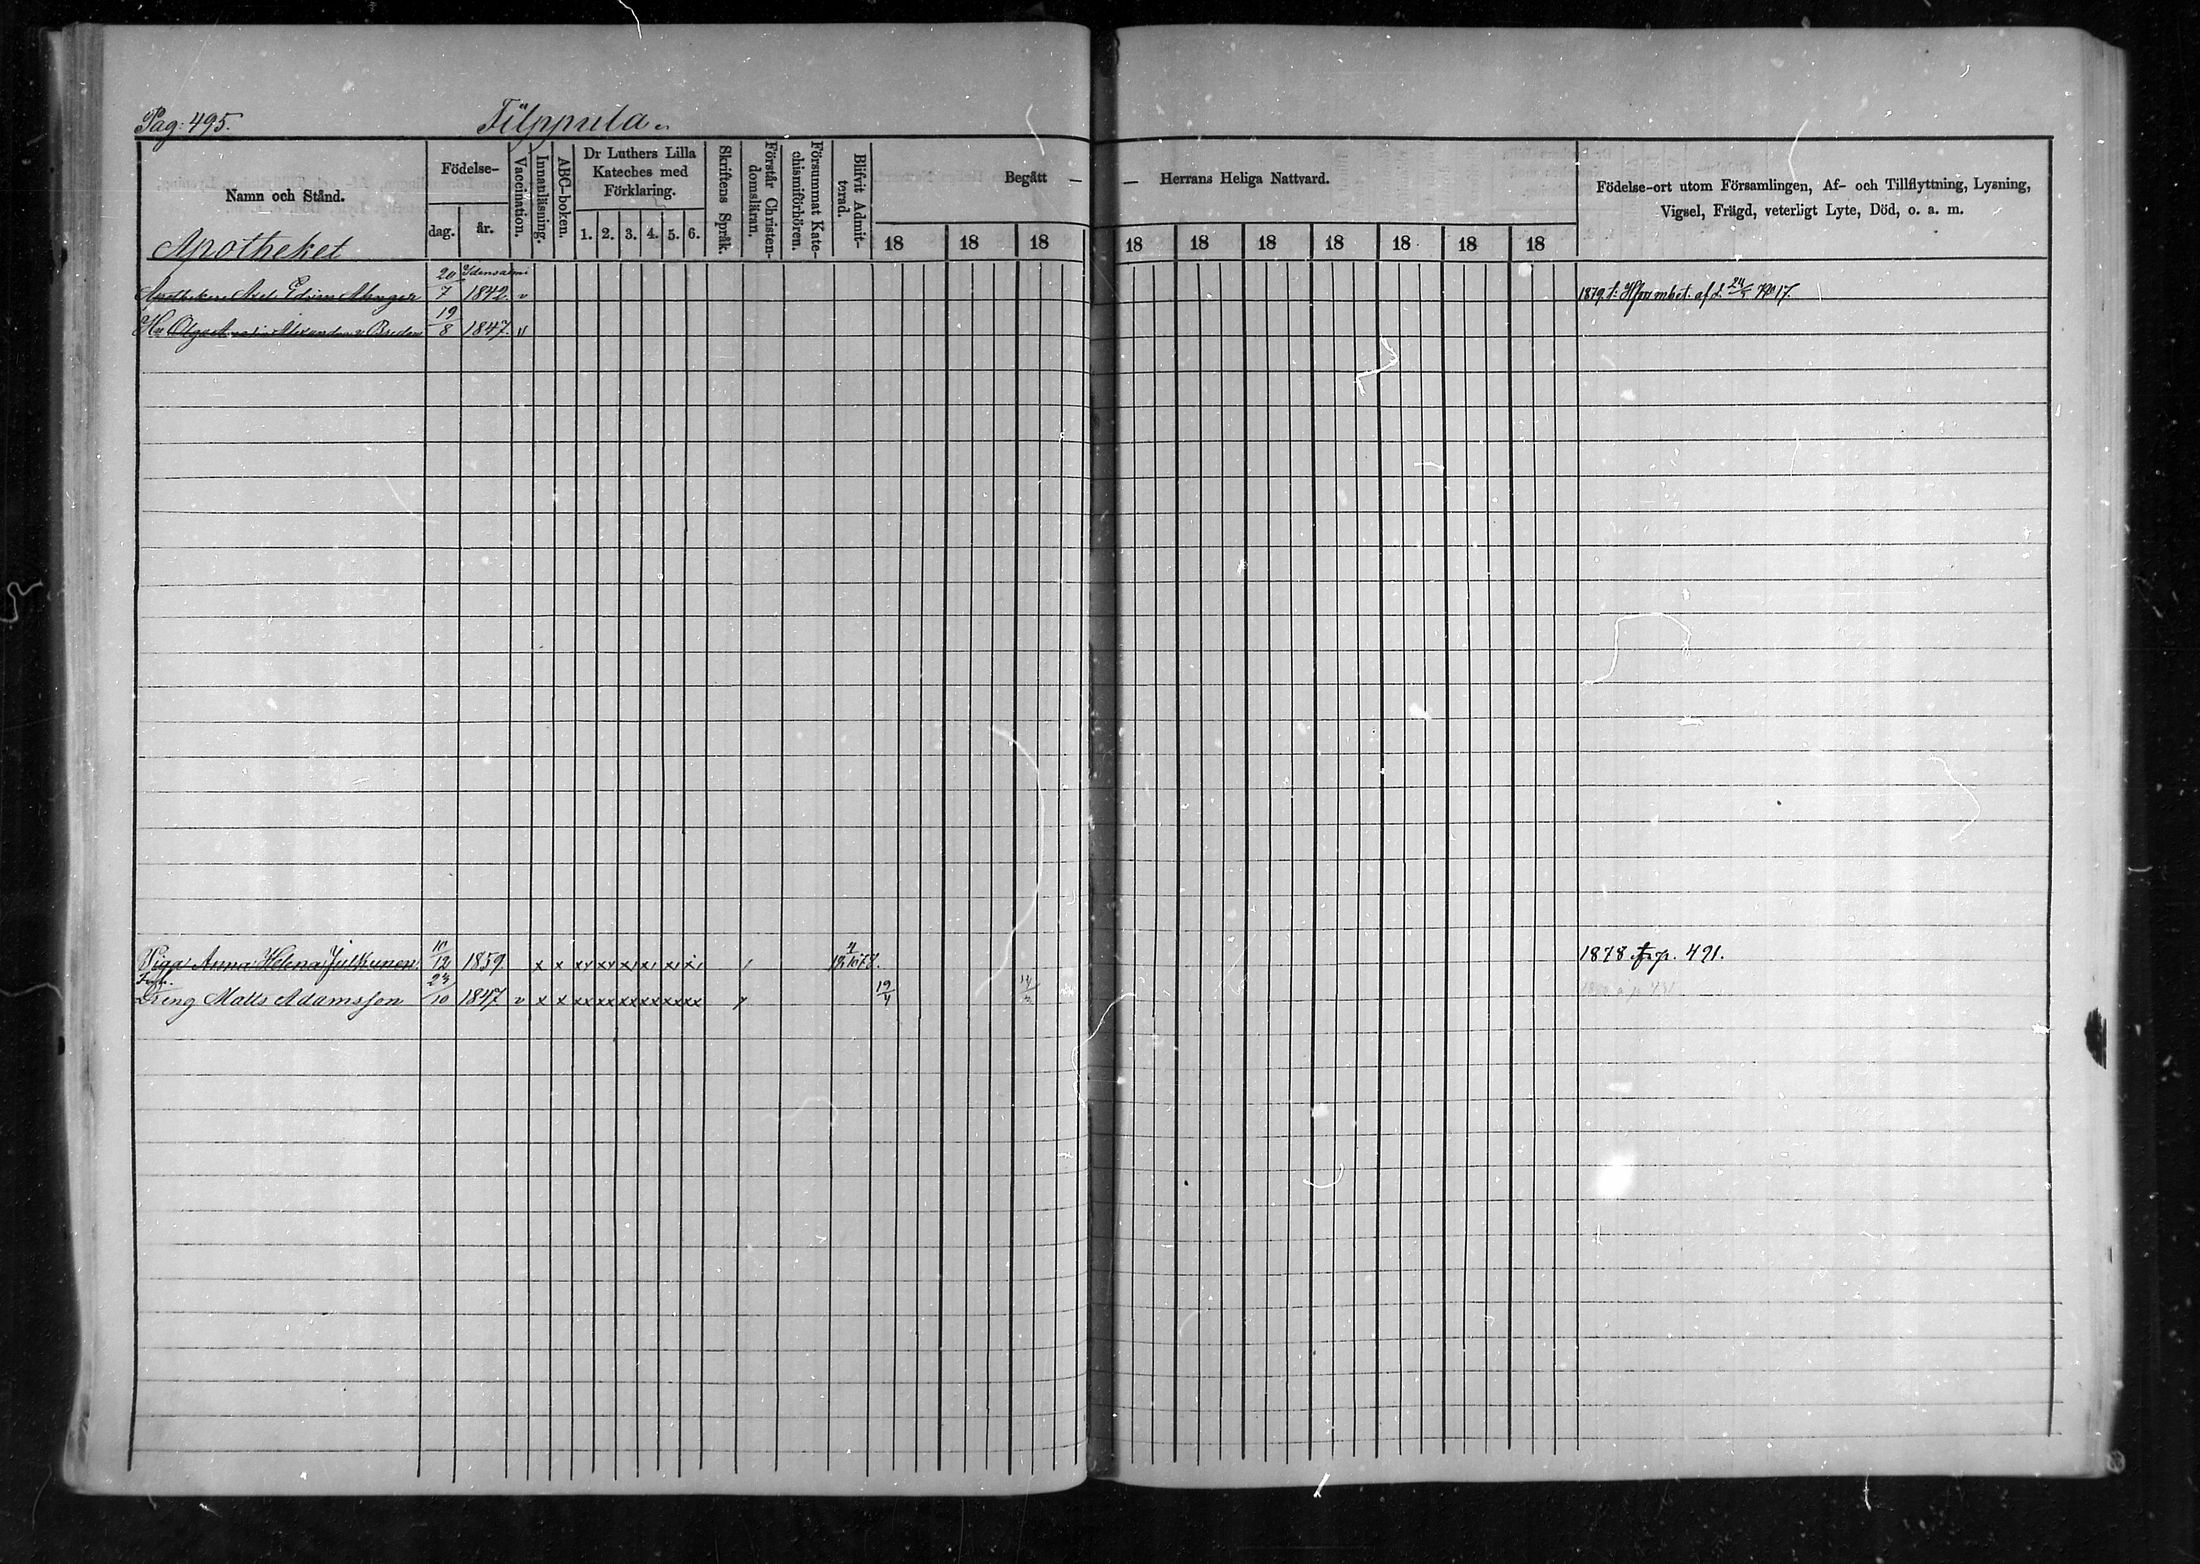 Pag: 495.
Filppula
Namn och Stånd.
Födelse-
dag.
år.
Vaccination.
Innanläsning.
ABC-boken.
Dr Luthers Lilla
Kateches med
Förklaring.
1. 2. 3. 4. 5. 6.
Skriftens Språk.
Förstår Christen-
domsläran.
Försummat Kate-
chismiförhören.
Blifvit Admit-
terad.
Begått —
— Herrans Heliga Nattvard.
18 18 18 18 18 18 18 18 18 18
Födelse-ort utom Församlingen, Af- och Tillflyttning, Lysning,
Vigsel, Frägd, veterligt Lyte, Död, o. a. m.
Apotheket
Idensalmi
Axel Edvin 20/7 1842 v 1879 t. af d. No 17.
Hu Olga Alexandra v. 19/8 1847. v
Piga Anna Helena Julkunen 12 1859 x x xv xv x x x x 1878 p. 491.
Dreng Matts Adamsson 24/10 1847 v x x xx xx xx xx xx xx 19/4